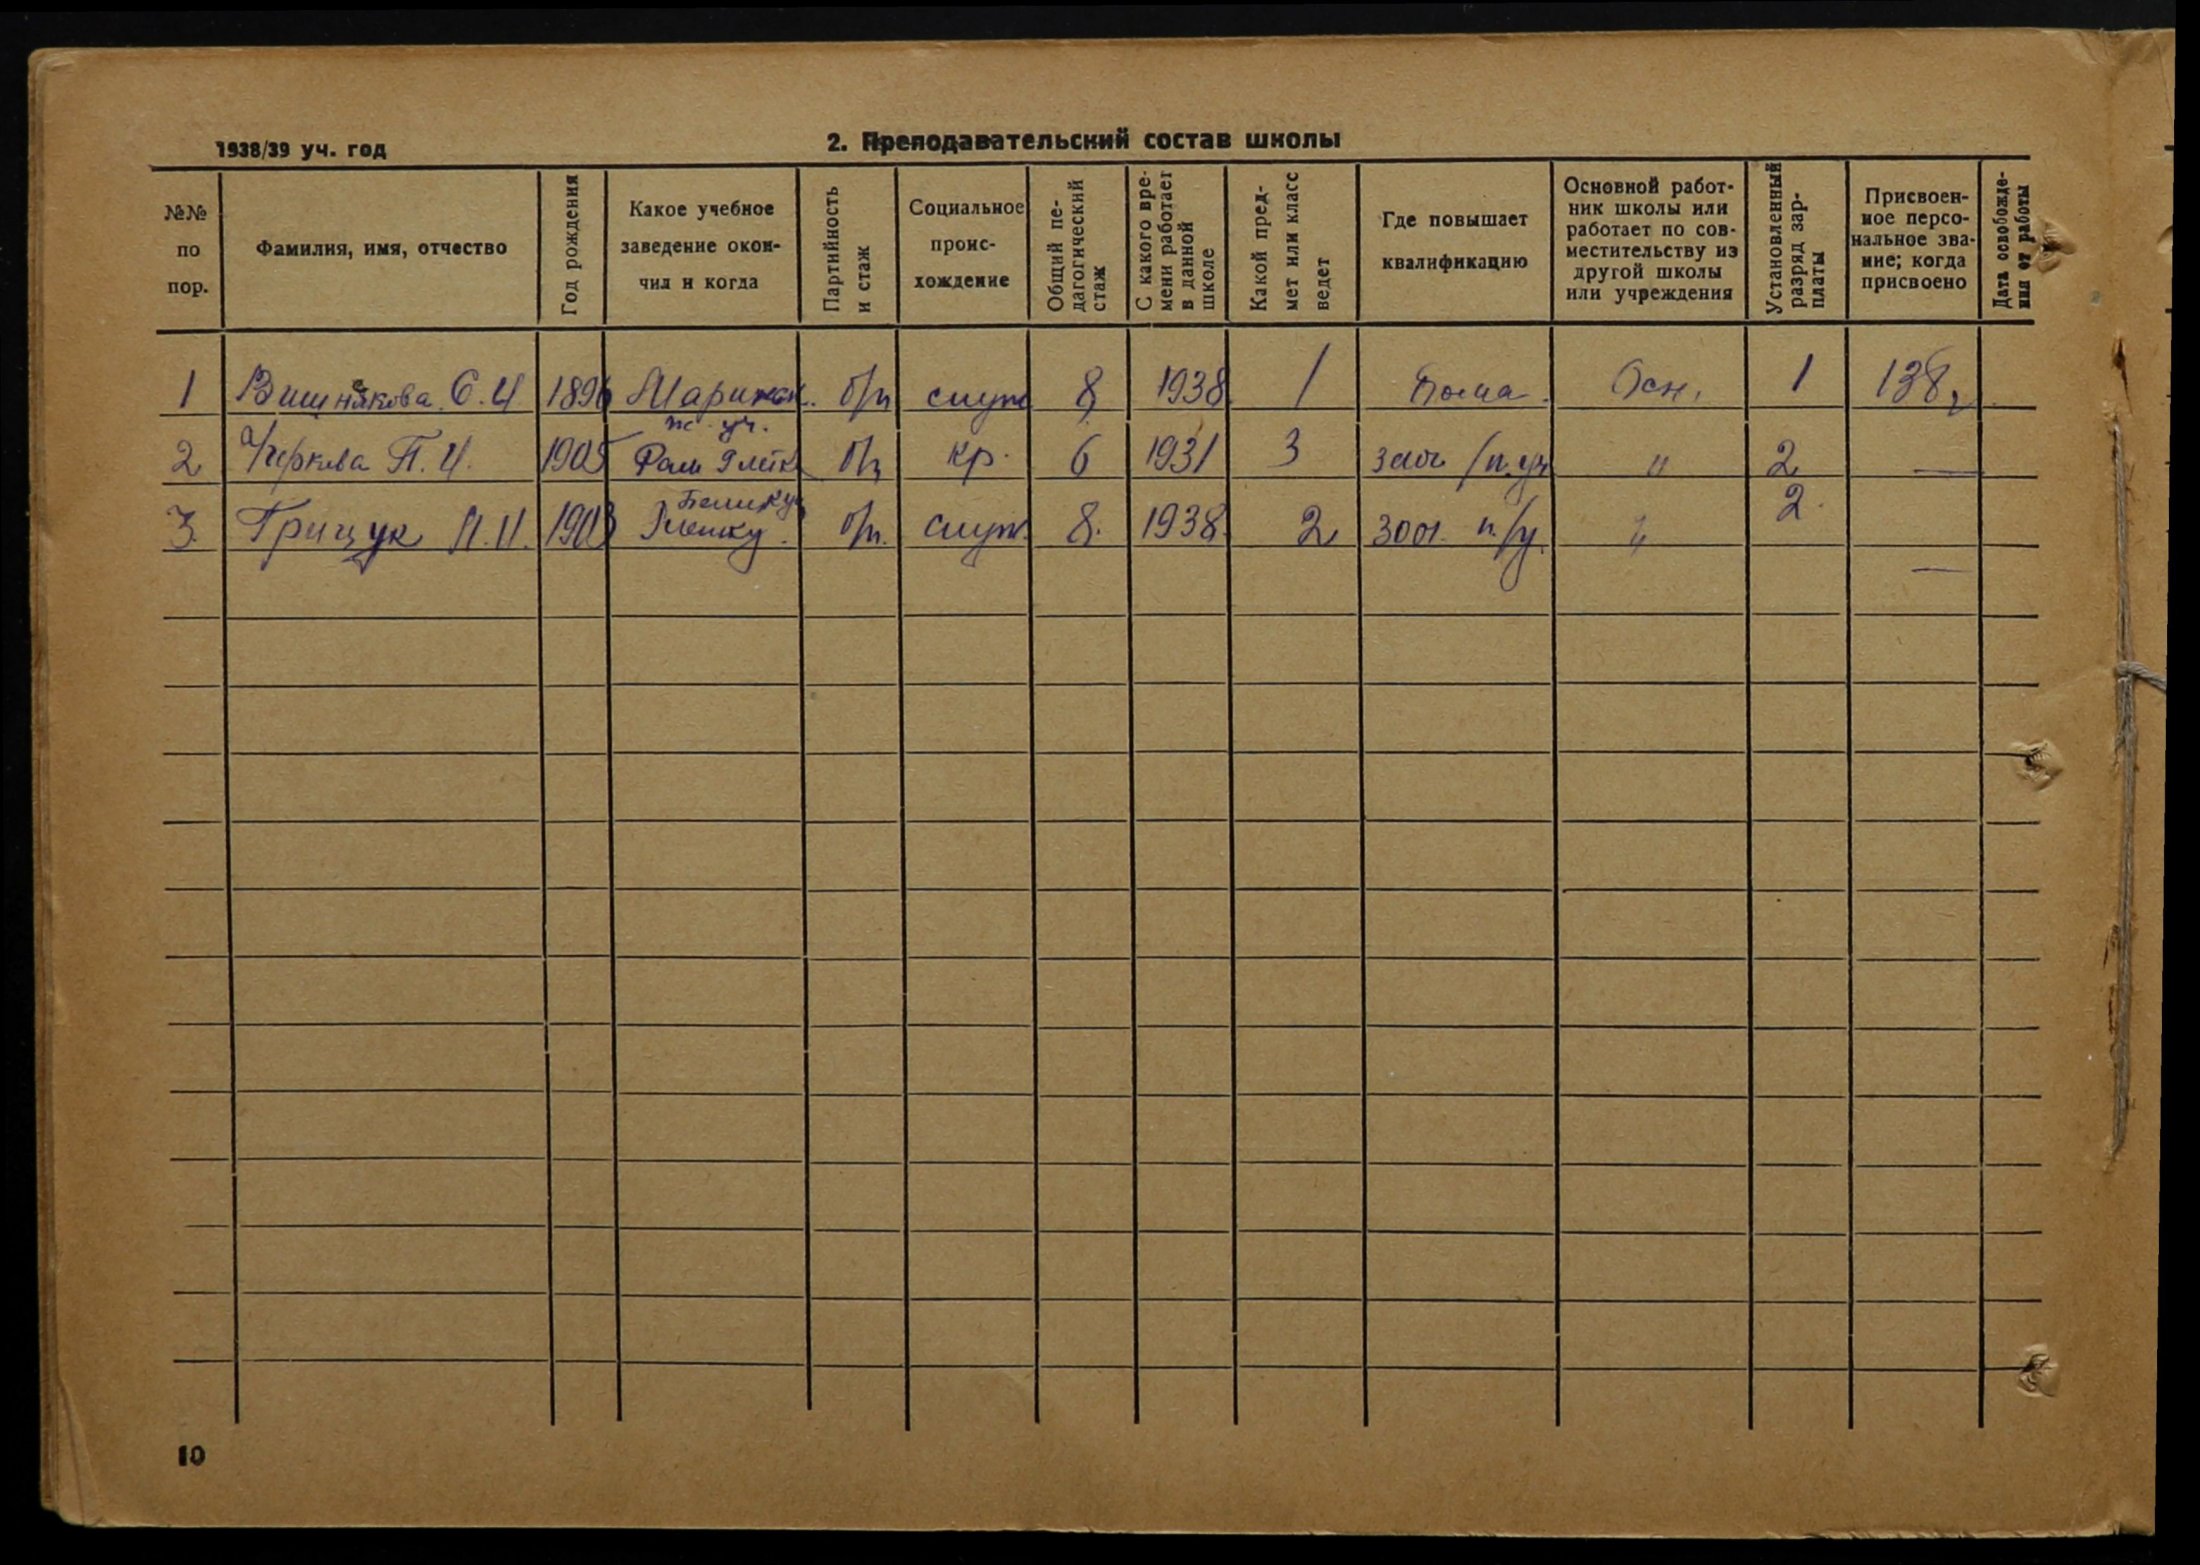 1938/39 уч. год
2. Преподавательский состав школы
№№ по пор.
Фамилия, имя, отчество
Год рождения
Какое учебное заведение окончил и когда
Партийность и стаж
Социальное происхождение
Общий педагогический стаж
С какого времени работает в данной школе
Какой предмет или класс ведет
Где повышает квалификацию
Основной работник школы или работает по совместительству из другой школы или учреждения
Установленный разряд зарплаты
Присвоенное персональное звание; когда присвоено
Дата освобождения от работы
1 Вишнякова 1896 Мариинск. б/п служ 8 1938 1 Дома. Осн. 1
ж. уч.
2 П. И. 1905 б/п кр. 6 1931 3 заоч п. уч " 2 —
3. Грищук 1903 б/п. служ. 8. 1938. 2 заоч. п/у. " 2. —
10